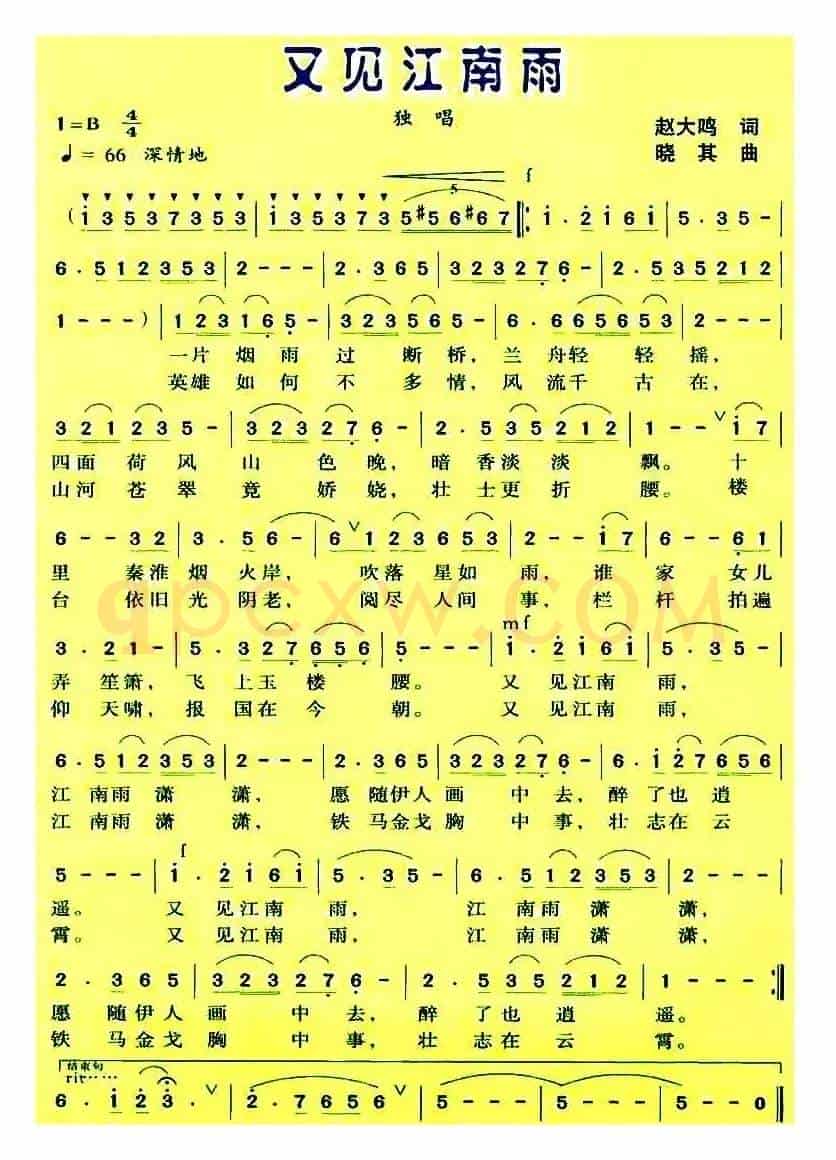 又见江南雨
1=B 4/4 独 唱 赵大鸣 词
♩= 66 深情地 晓 其 曲
f
5
( i 3 5 3 7 3 5 3 | i 3 5 3 7 3 5 #5 6 #6 7 ‖: i · 2 i 6 i | 5 · 3 5 - |
6 · 5 1 2 3 5 3 | 2 - - - | 2 · 3 6 5 | 3 2 3 2 7 6 · | 2 · 5 3 5 2 1 2 |
1 - - - ) | 1 2 3 1 6 5 - | 3 2 3 5 6 5 - | 6 · 6 5 6 5 3 | 2 - - - |
一片 烟雨 过 断 桥, 兰 舟轻 轻 摇,
英雄 如 何 不 多 情, 风 流千 古 在,
3 2 1 2 3 5 - | 3 2 3 2 7 6 · | 2 · 5 3 5 2 1 2 | 1 - - i 7 |
四面 荷 风 山 色 晚, 暗 香淡 淡 飘。 十
山河 苍 翠 竟 娇 娆, 壮 士更 折 腰。 楼
6 - - 3 2 | 3 · 5 6 - | 6 1 2 3 5 3 | 2 - - i 7 | 6 - - 6 1 |
里 秦淮 烟 火岸, 吹落 星如 雨, 谁 家 女儿
台 依旧 光 阴老, 阅尽 人间 事, 栏 杆 拍遍
qpcxw.COM
mf
3 · 2 1 - | 5 · 3 2 7 6 5 6 | 5 - - - | i · 2 i 6 i | 5 · 3 5 - |
弄 笙箫, 飞 上玉 楼 腰。 又 见江南 雨,
仰 天啸, 报 国在 今 朝。 又 见江南 雨,
6 · 5 1 2 3 5 3 | 2 - - - | 2 · 3 6 5 | 3 2 3 2 7 6 · | 6 · i 2 7 6 5 6 |
江 南雨 潇 潇, 愿 随伊人 画 中 去, 醉 了也 逍
江 南雨 潇 潇, 铁 马金戈 胸 中 事, 壮 志在 云
f
5 - - - | i · 2 i 6 i | 5 · 3 5 - | 6 · 5 1 2 3 5 3 | 2 - - - |
遥。 又 见江南 雨, 江 南雨 潇 潇,
霄。 又 见江南 雨, 江 南雨 潇 潇,
2 · 3 6 5 | 3 2 3 2 7 6 · | 2 · 5 3 5 2 1 2 | 1 - - - :‖
愿 随伊人 画 中 去, 醉 了也 逍 遥。
铁 马金戈 胸 中 事, 壮 志在 云 霄。
结束句
rit······
6 · i 2 3 · | 2 · 7 6 5 6 | 5 - - - | 5 - - - | 5 - - 0 ‖